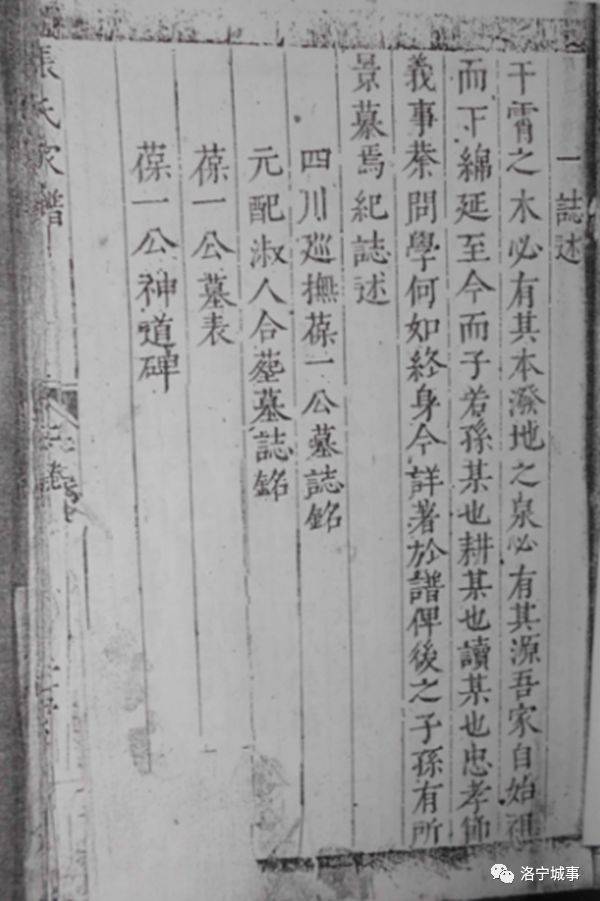 一誌述
干霄之木必有其本潑地之泉必有其源吾家自始祖
而下綿延至今而子若孫某也耕某也讀某也忠孝節
義事業問學何如終身今詳著於譜俾後之子孫有所
景慕焉紀誌述
四川巡撫葆一公墓誌銘
元配淑人合葬墓誌銘
葆一公墓表
葆一公神道碑
張氏家譜
洛宁城事